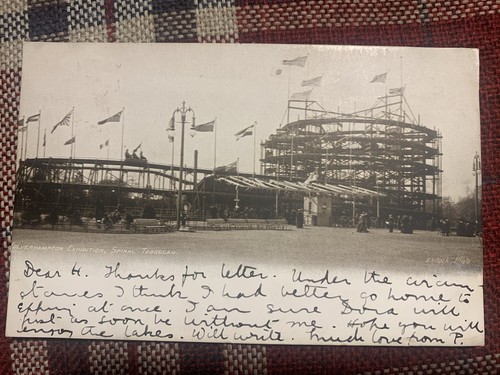 WOLVERHAMPTON EXHIBITION, SPIRAL TOBOGGAN.
Dear H. Thanks for letter. Under the circum-
stances I think I had better go home to
at once. I am sure Dora will
just as soon be without me. Hope you will
enjoy the lakes. Will write. Much love from P.